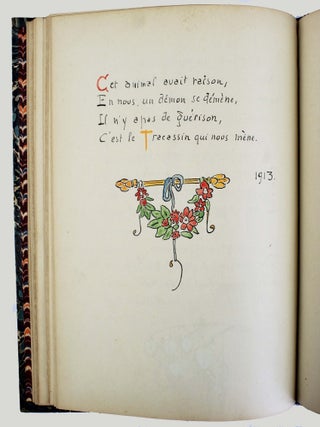 Cet animal avait raison,
En nous, un démon se démène,
Il n'y a pas de guérison,
C'est le Tracassin qui nous mène.
1913.